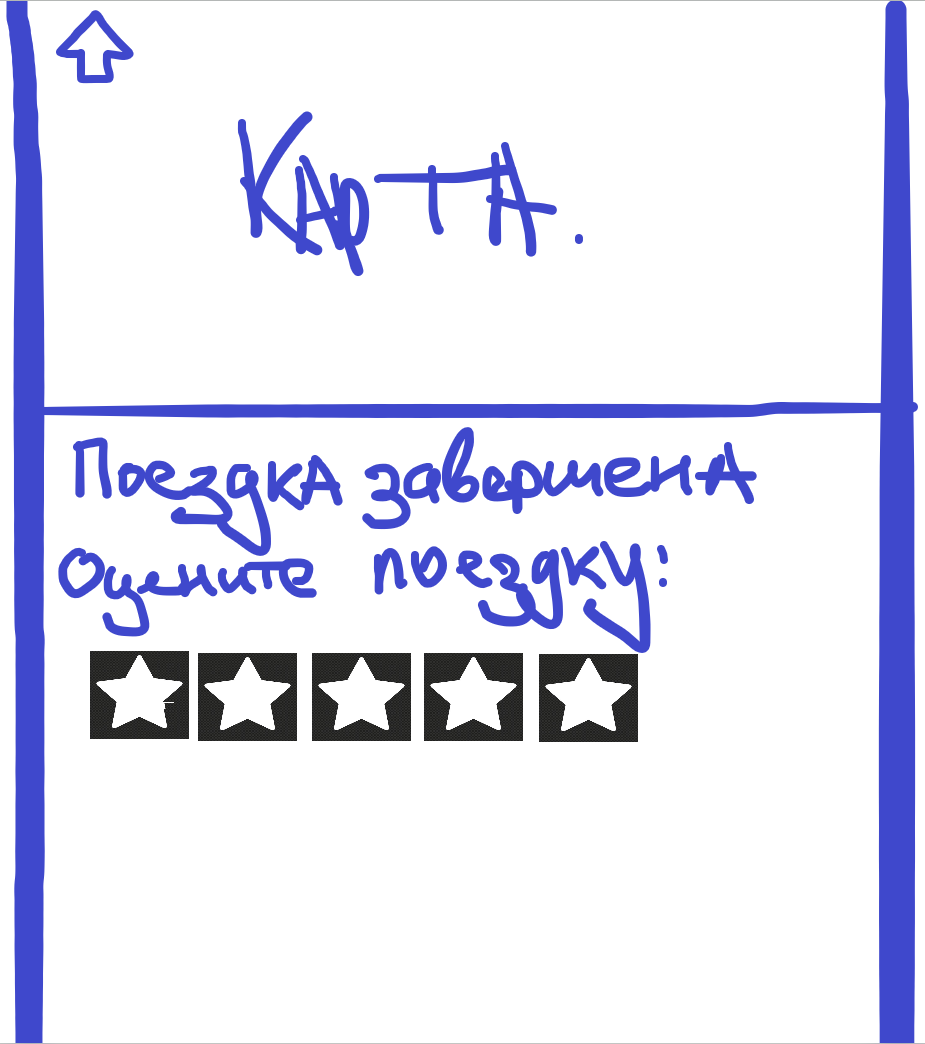 Карта.
Поездка завершена
Оцените поездку: